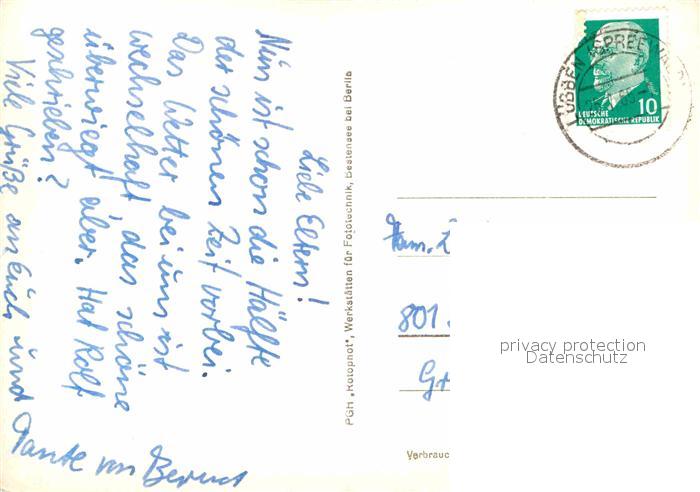 Liebe Eltern!
Nun ist schon die Hälfte
der schönen Zeit vorbei.
Das Wetter bei uns ist
wechselhaft, das schöne
überwiegt aber. Hat Rolf
geschrieben?
Viele Grüße an Euch und
Tante von Bernd
PGH „Rotophot", Werkstätten für Fototechnik, Bestensee bei Berlin
LÜBBEN (SPREEWALD)
10
DEUTSCHE
DEMOKRATISCHE REPUBLIK
Fam.
801
privacy protection
Datenschutz
Verbrauc